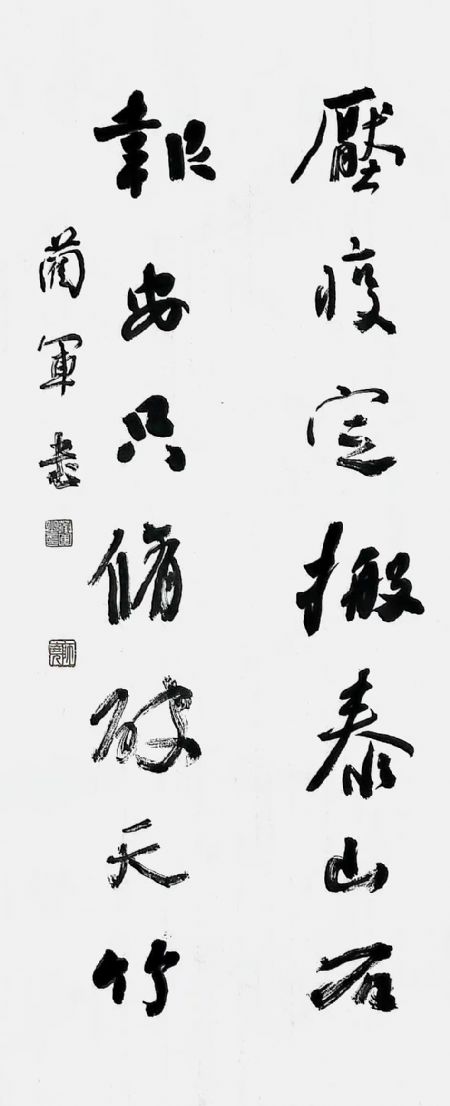 壓疫定搬泰山石
報安只備破天竹
蘭軍書